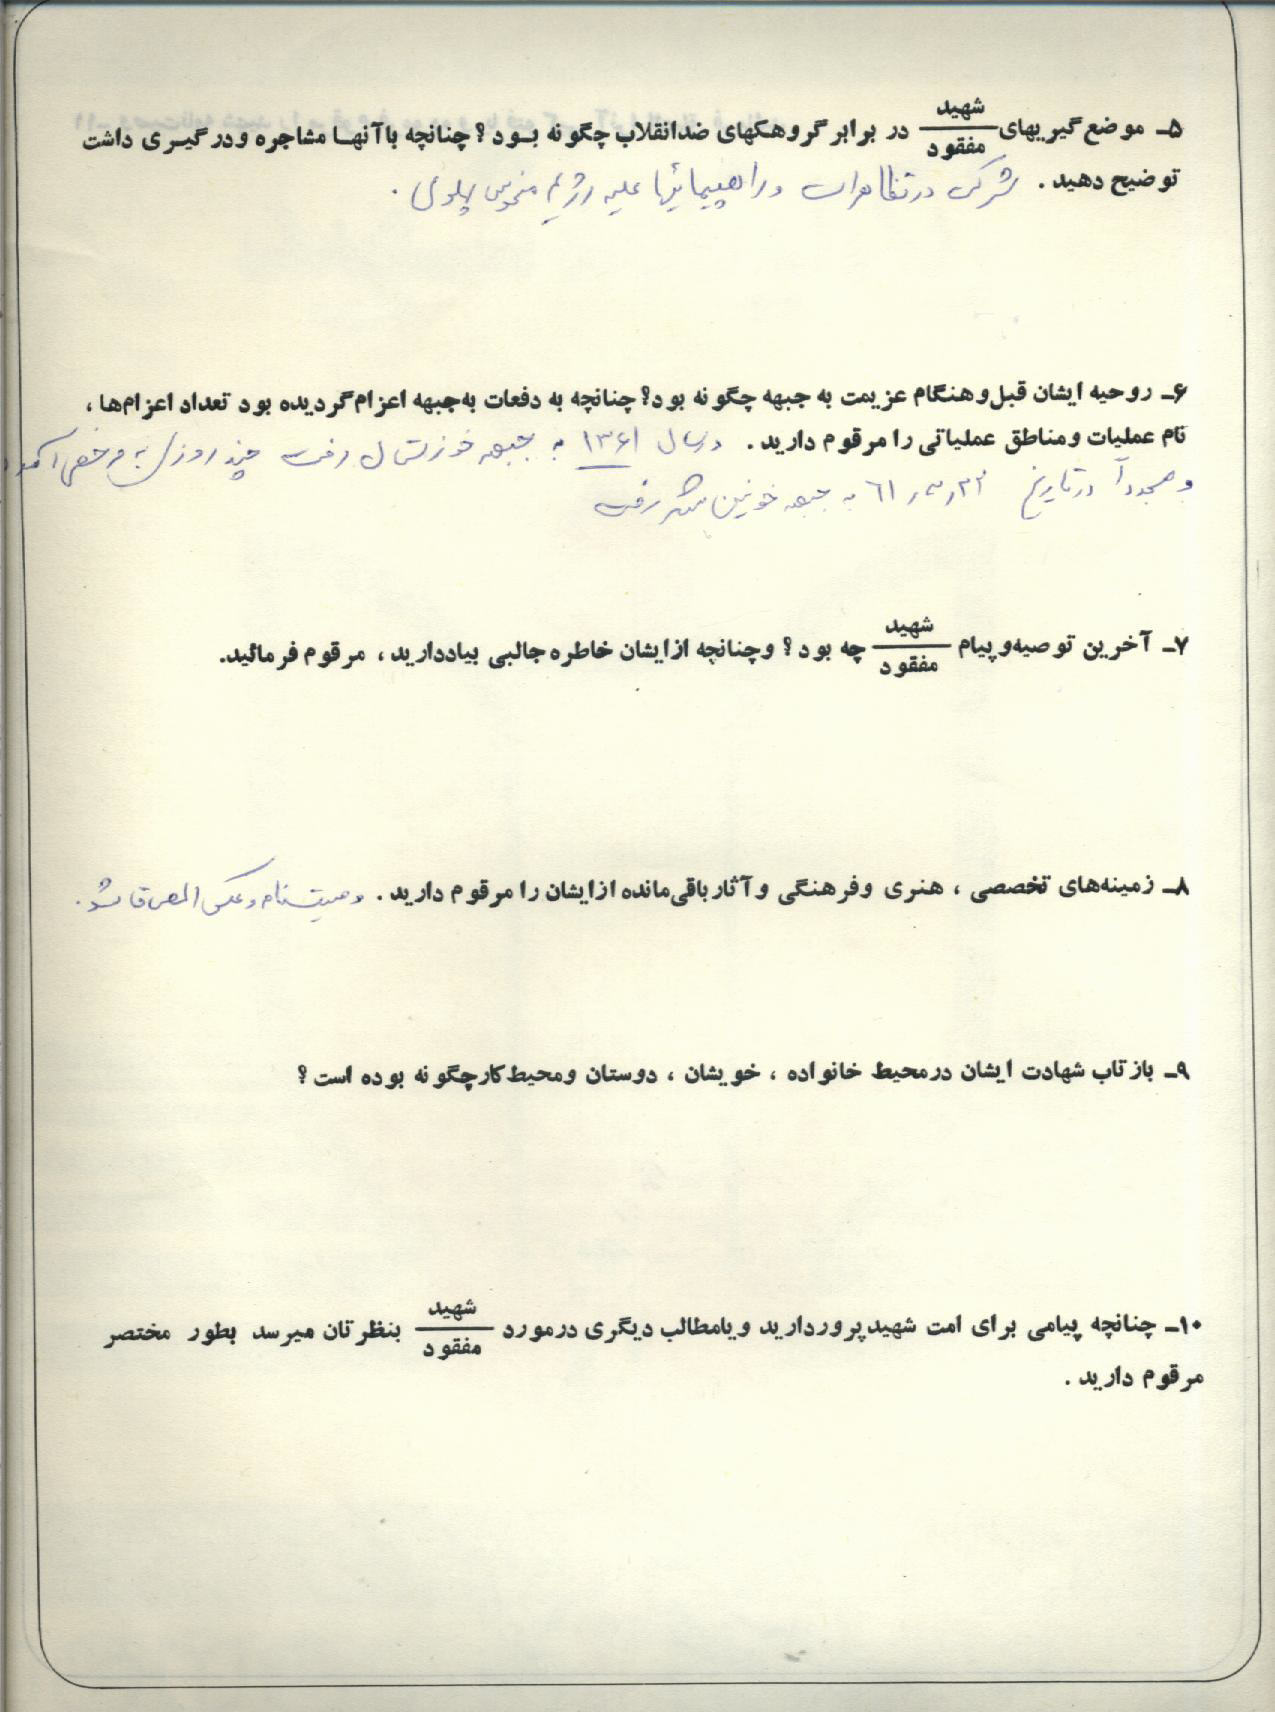 ۵ـ موضع گیریهای شهید / مفقود در برابر گروهکهای ضدانقلاب چگونه بود؟ چنانچه باآنها مشاجره ودرگیری داشت
توضیح دهید. شرکت در تظاهرات و راهپیمائیها علیه رژیم منحوس پهلوی.
۶ـ روحیه ایشان قبل وهنگام عزیمت به جبهه چگونه بود؟ چنانچه به دفعات به جبهه اعزام گردیده بود تعداد اعزام‌ها،
نام عملیات ومناطق عملیاتی را مرقوم دارید. در سال ۱۳۶۱ به جبهه خوزستان رفت چند روزی به مرخصی آمد
و مجددآ در تاریخ ۶۱ به جبهه خونین شهر رفت
۷ـ آخرین توصیه‌وپیام شهید / مفقود چه بود؟ وچنانچه ازایشان خاطره جالبی بیاددارید، مرقوم فرمائید.
۸ـ زمینه‌های تخصصی، هنری وفرهنگی وآثار باقی‌مانده ازایشان را مرقوم دارید. وصیت نامه و عکس
۹ـ بازتاب شهادت ایشان درمحیط خانواده، خویشان، دوستان ومحیط کارچگونه بوده است؟
۱۰ـ چنانچه پیامی برای امت شهیدپروردارید ویامطالب دیگری درمورد شهید / مفقود بنظرتان میرسد بطور مختصر
مرقوم دارید.